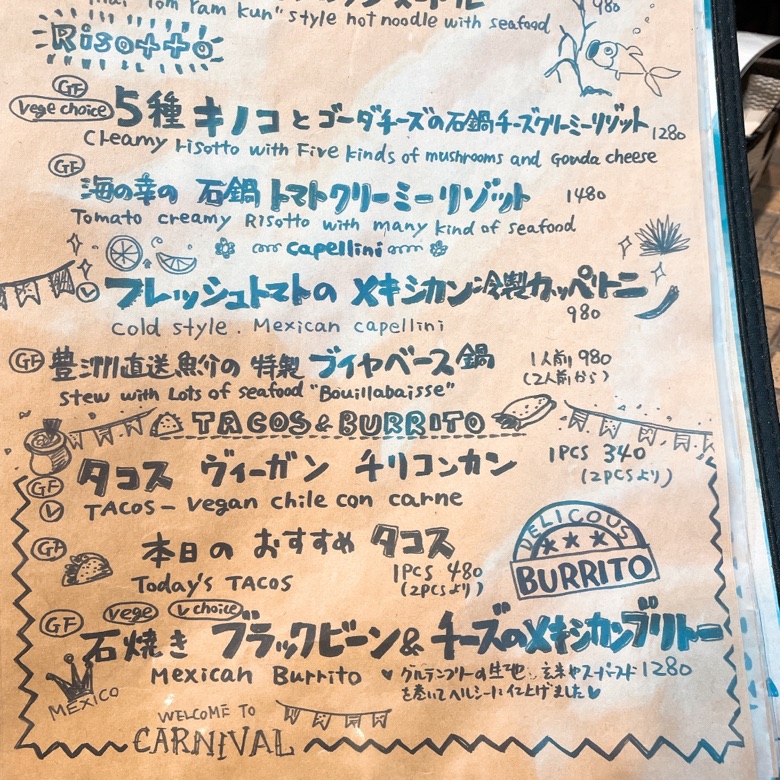 "Tom Yam Kun" style hot noodle with seafood
980
Risotto
GF
Vege choice
5種 キノコとゴーダチーズの石鍋チーズクリーミーリゾット 1280
Creamy risotto with Five kinds of mushrooms and Gouda cheese
GF
海の幸の 石鍋トマトクリーミーリゾット 1480
Tomato creamy Risotto with many kind of seafood
capellini
V フレッシュトマトの メキシカン冷製カッペリーニ
980
cold style. Mexican capellini
GF 豊洲直送魚介の 特製 ブイヤベース鍋 1人前 980
(2人前から)
stew with Lots of seafood "Bouillabaisse"
TACOS & BURRITO
タコス ヴィーガン チリコンカン 1PCS 340
(2PCSより)
GF
V TACOS - vegan chile con carne
GF 本日の おすすめ タコス
Today's TACOS 1PCS 480
(2PCSより)
DELICOUS
BURRITO
GF vege V choice
石焼き ブラックビーン&チーズのメキシカンブリトー
Mexican Burrito グルテンフリーの生地、玄米やスーパーフード 1280
を巻いてヘルシーに仕上げました
MEXICO
WELCOME TO
CARNIVAL